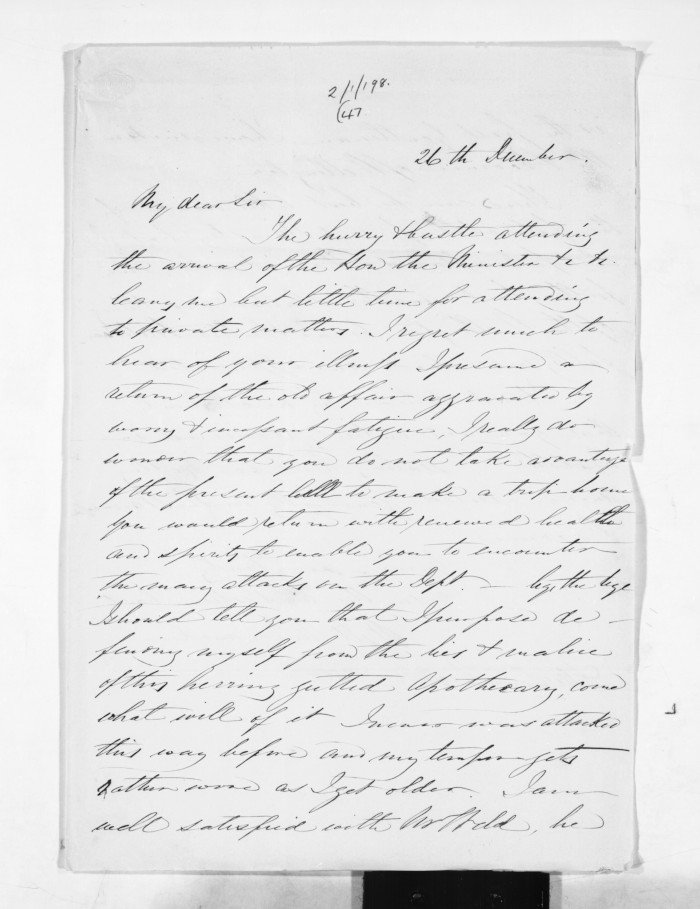 2/1/198.
(47
26th December.
My dear Sir
The hurry & bustle attending
the arrival of the Hon the Minister &c &c.
leaves me but little time for attending
to private matters. I regret much to
hear of your illness I presume a
return of the old affair aggravated by
worry & incessant fatigue, I really do
wonder that you do not take advantage
of the present lull to make a trip home
you would return with renewed health
and spirits to enable you to encounter
the many attacks on the Dept. – by the bye
I should tell you that I purpose de –
fending myself from the lies & malice
of this herring gutted Apothecary, come
what will of it I never was attacked
this way before and my temper gets
rather worse as I get older. I am
well satisfied with Mr , he